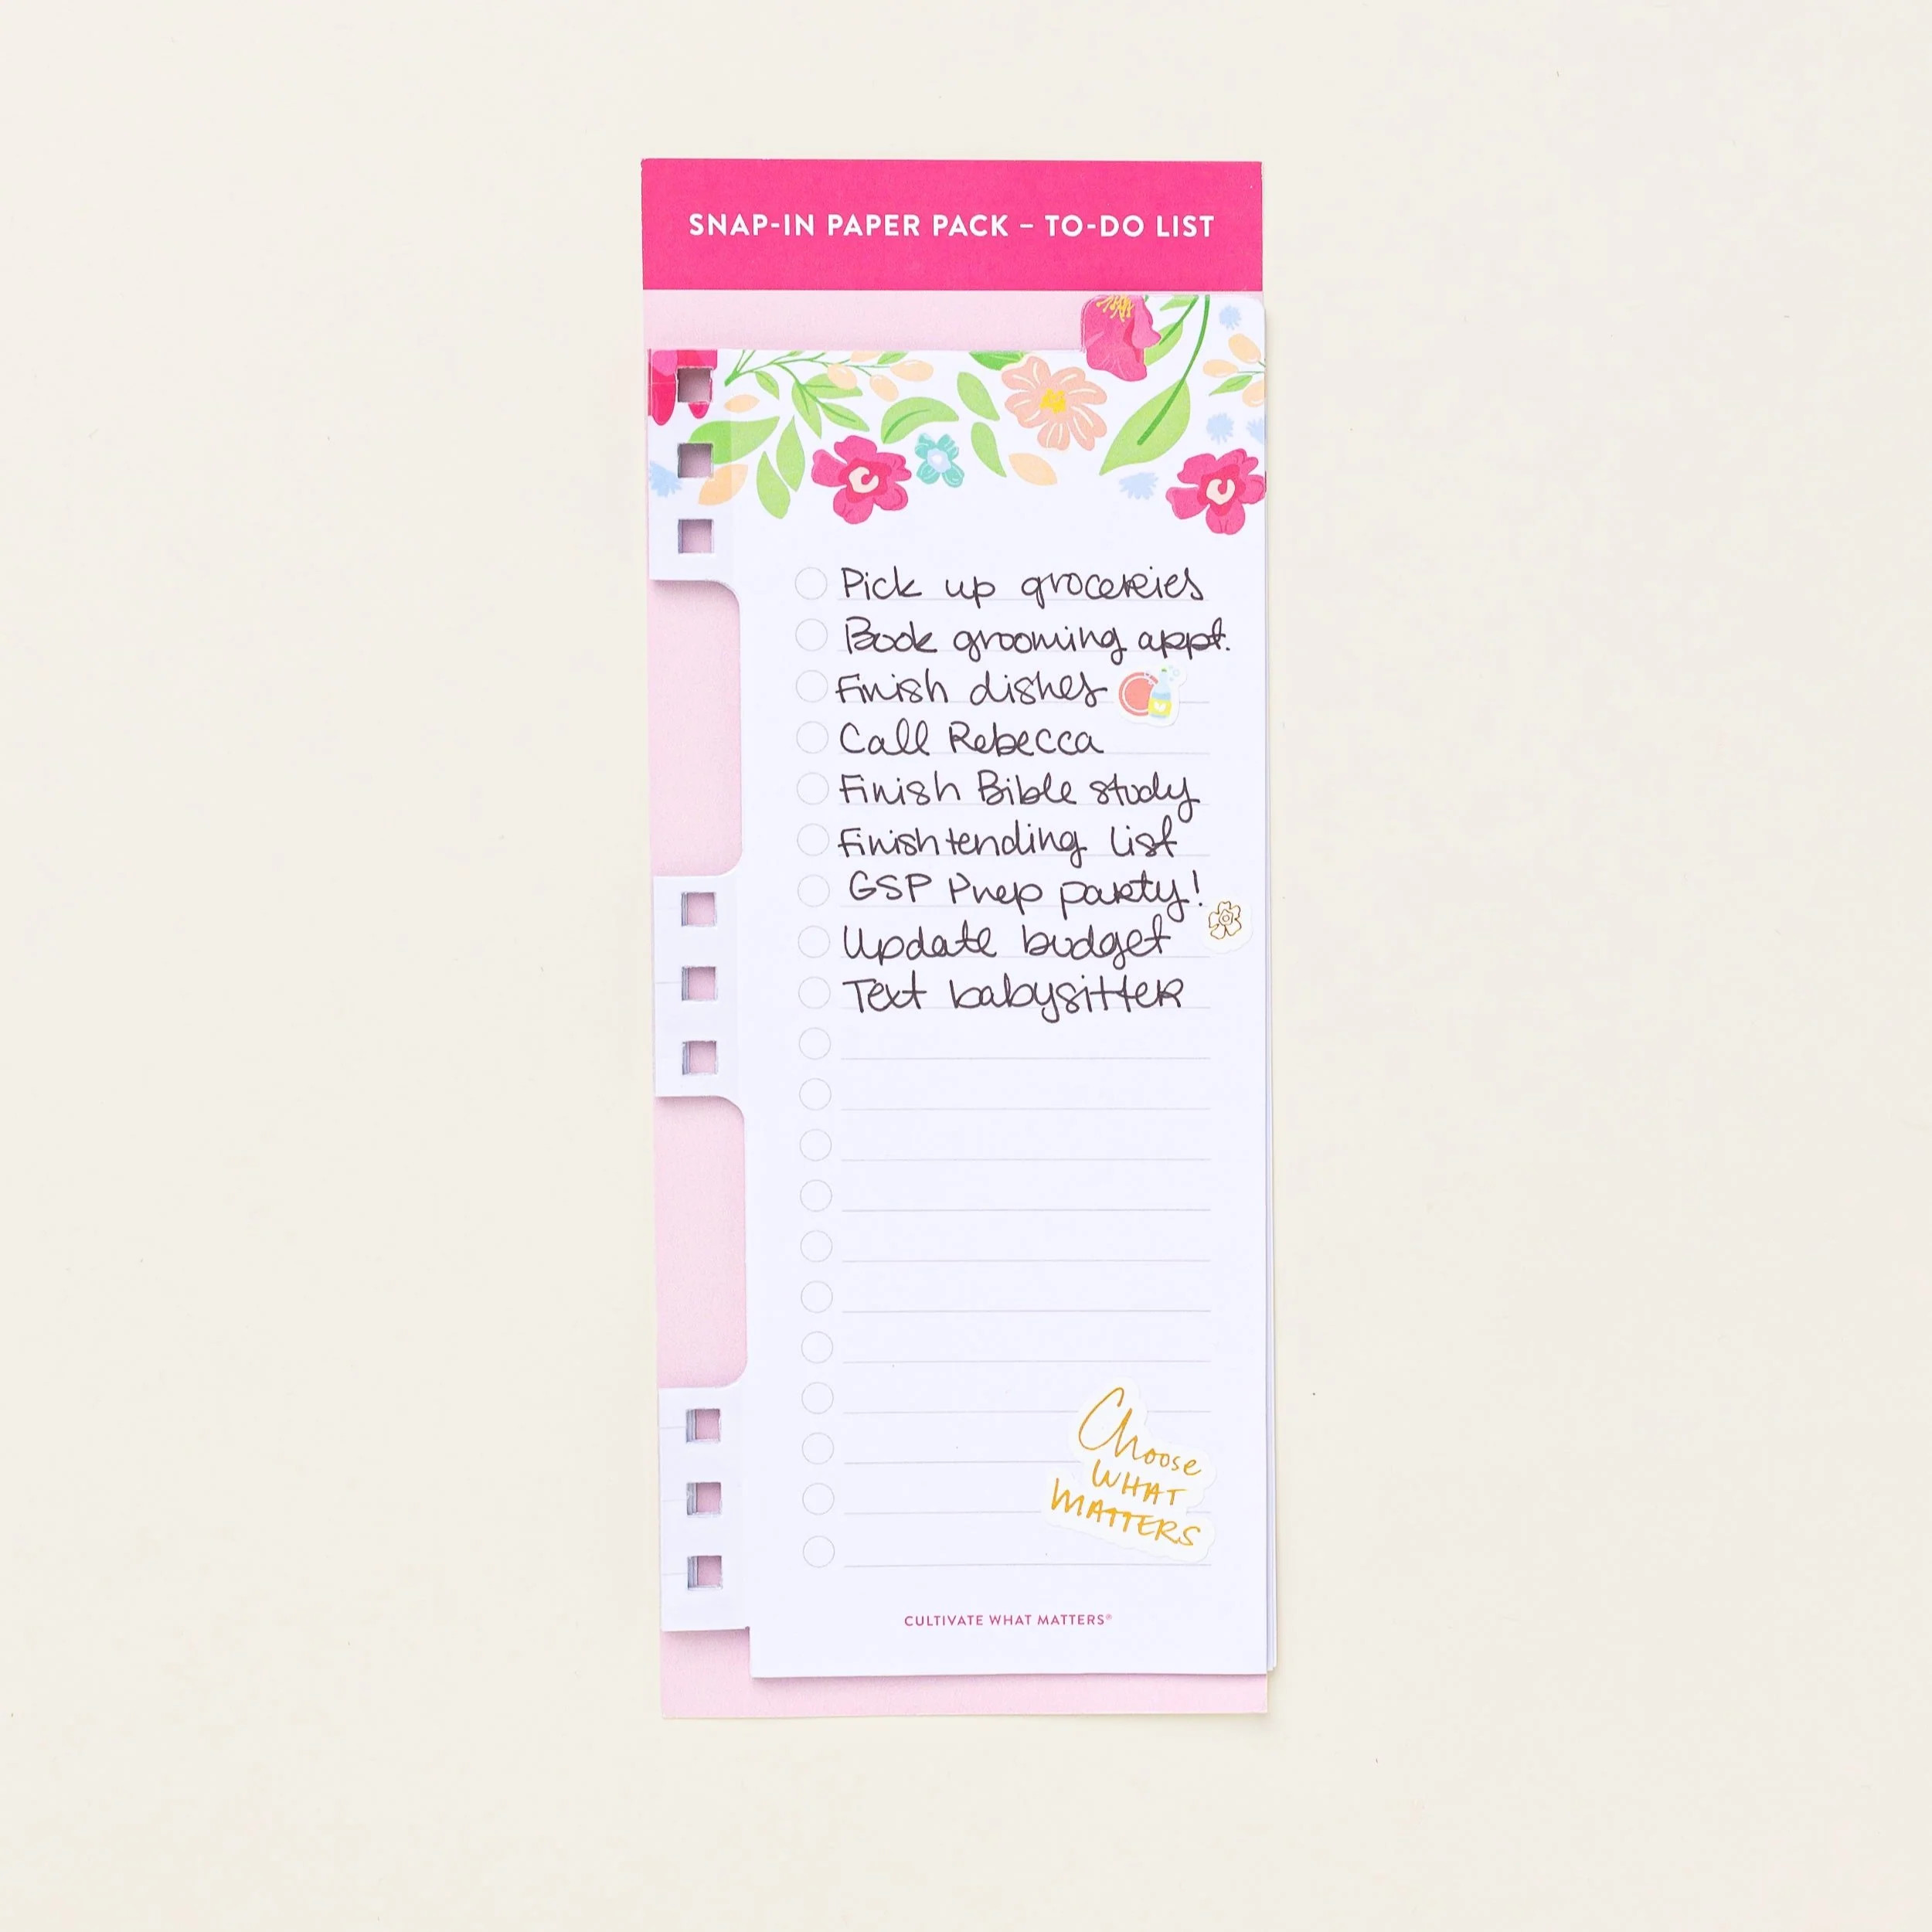 SNAP-IN PAPER PACK – TO-DO LIST
Pick up groceries
Book grooming appt.
Finish dishes
Call Rebecca
Finish Bible study
Finish tending list
GSP Prep party!
Update budget
Text babysitter
Choose
WHAT
MATTERS
CULTIVATE WHAT MATTERS®